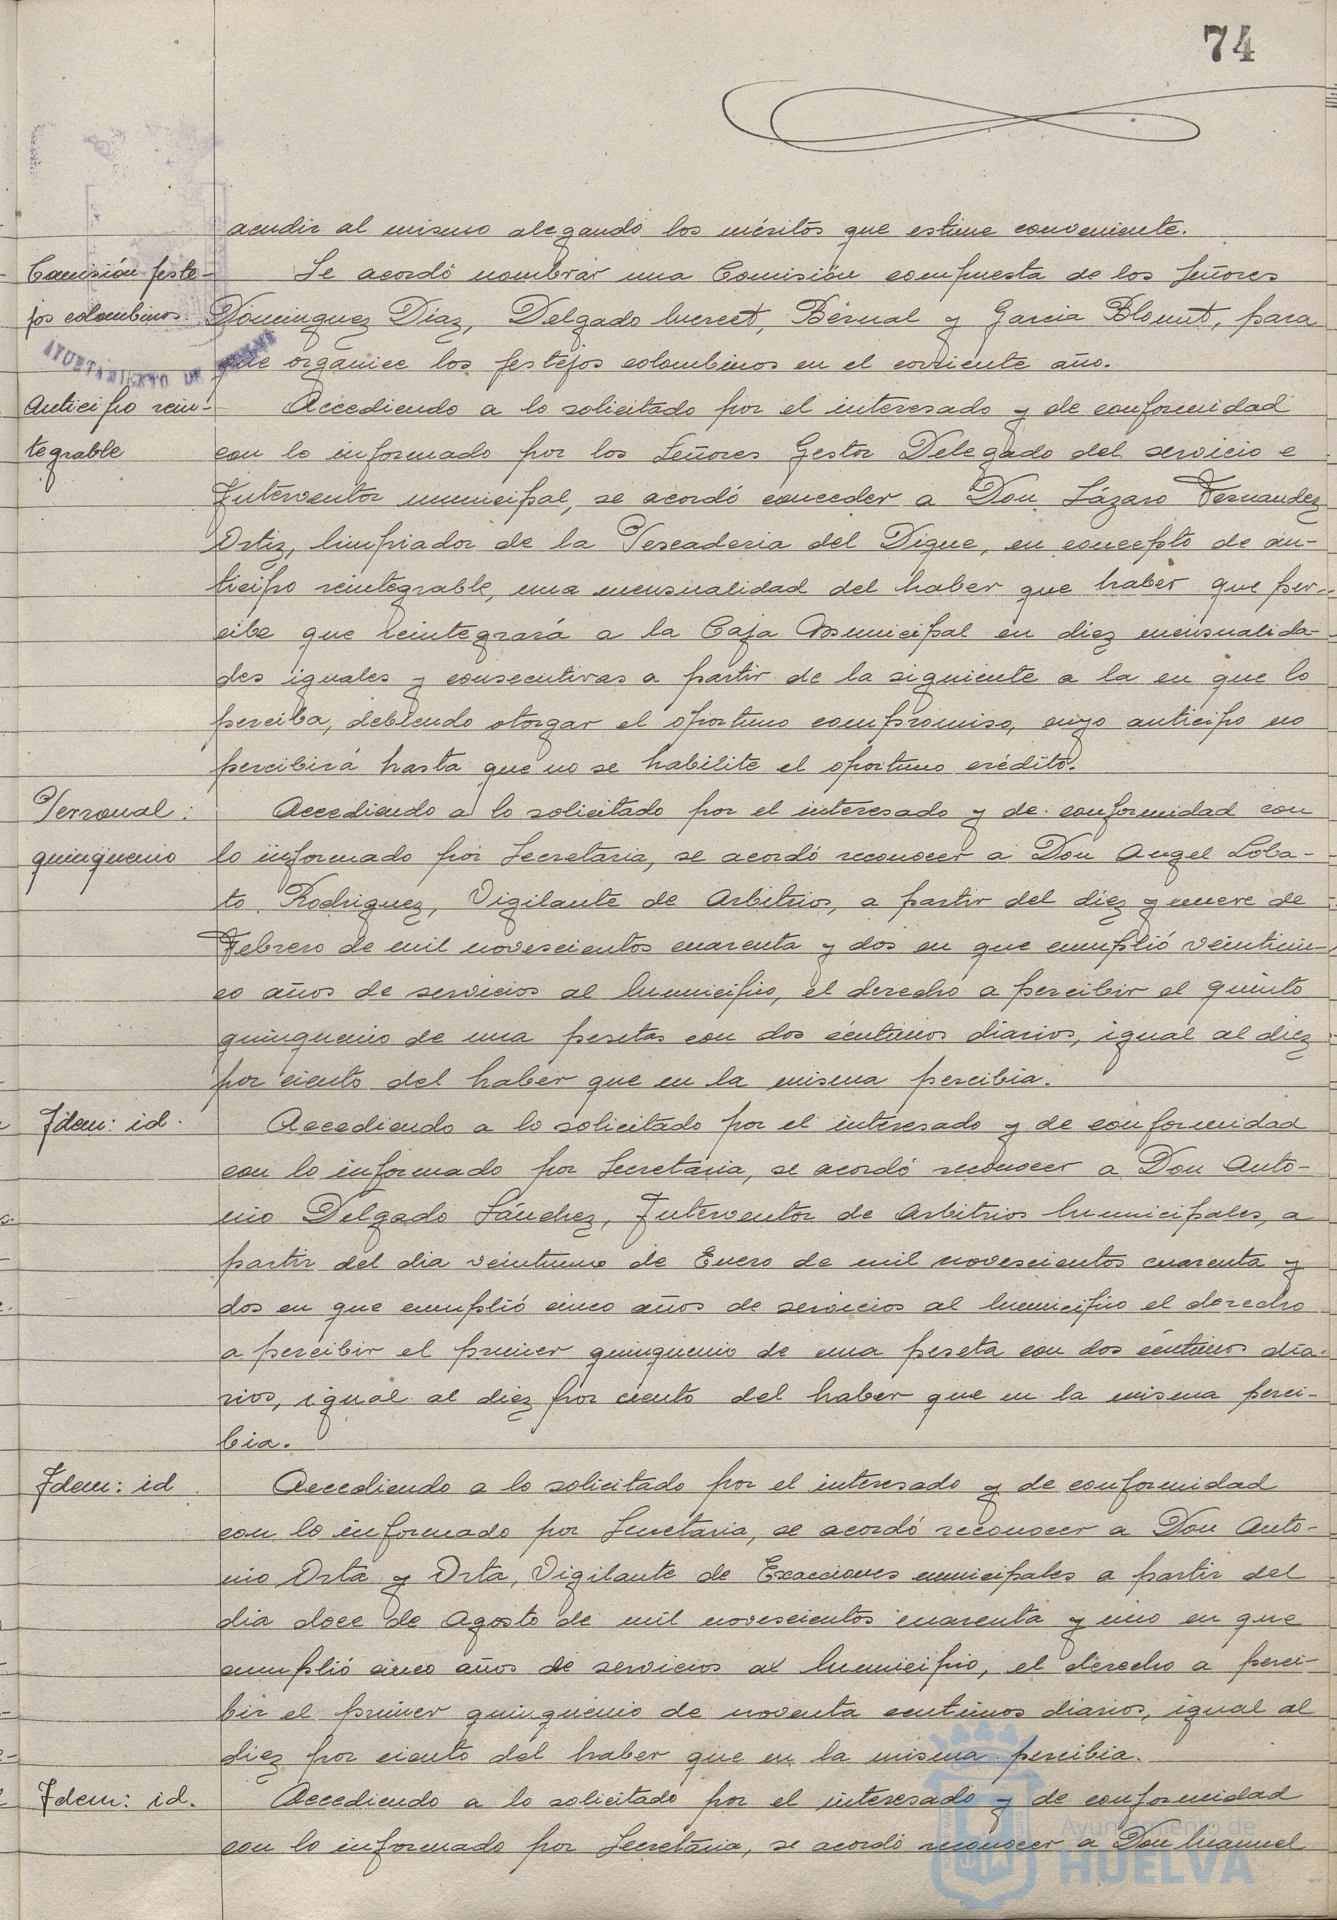 74
acudir al mismo alegando los méritos que estime conveniente.
Comisión feste-
jos colombinos.
Se acordó nombrar una Comisión compuesta de los Señores
Dominguez Diaz, Delgado Mercet, Bernal y Garcia Blomet, para
que organice los festejos colombinos en el corriente año.
AYUNTAMIENTO DE
Anticipo rein-
tegrable
Accediendo a lo solicitado por el interesado y de conformidad
con lo informado por los Señores Gestor Delegado del servicio e
Interventor municipal, se acordó conceder a Don Lázaro Fernandez
Ortiz, limpiador de la Pescaderia del Dique, en concepto de an-
ticipo reintegrable, una mensualidad del haber que haber que per-
cibe que reintegrará a la Caja Municipal en diez mensualida-
des iguales y consecutivas a partir de la siguiente a la en que lo
perciba, debiendo otorgar el oportuno compromiso, cuyo anticipo no
percibirá hasta que no se habilite el oportuno crédito.
Personal:
quinquenio
Accediendo a lo solicitado por el interesado y de conformidad con
lo informado por Secretaria, se acordó reconocer a Don Angel Loba-
to Rodriguez, Vigilante de Arbitrios, a partir del diez y nueve de
Febrero de mil novescientos cuarenta y dos en que cumplió veinticin-
co años de servicios al Municipio, el derecho a percibir el quinto
quinquenio de una pesetas con dos céntimos diarios, igual al diez
por ciento del haber que en la misma percibia.
Idem: id.
Accediendo a lo solicitado por el interesado y de conformidad
con lo informado por Secretaria, se acordó reconocer a Don Anto-
nio Delgado Sánchez, Interventor de Arbitrios Municipales, a
partir del dia veintiuno de Enero de mil novescientos cuarenta y
dos en que cumplió cinco años de servicios al Municipio el derecho
a percibir el primer quinquenio de una peseta con dos céntimos dia-
rios, igual al diez por ciento del haber que en la misma perci-
bia.
Idem: id
Accediendo a lo solicitado por el interesado y de conformidad
con lo informado por Secretaria, se acordó reconocer a Don Anto-
nio Orta y Orta, Vigilante de Exacciones municipales a partir del
dia doce de Agosto de mil novescientos cuarenta y uno en que
cumplió cinco años de servicios al Municipio, el derecho a perci-
bir el primer quinquenio de noventa centimos diarios, igual al
diez por ciento del haber que en la misma percibia.
Idem: id.
Accediendo a lo solicitado por el interesado y de conformidad
con lo informado por Secretaria, se acordó reconocer a Don Manuel
Ayuntamiento de
HUELVA